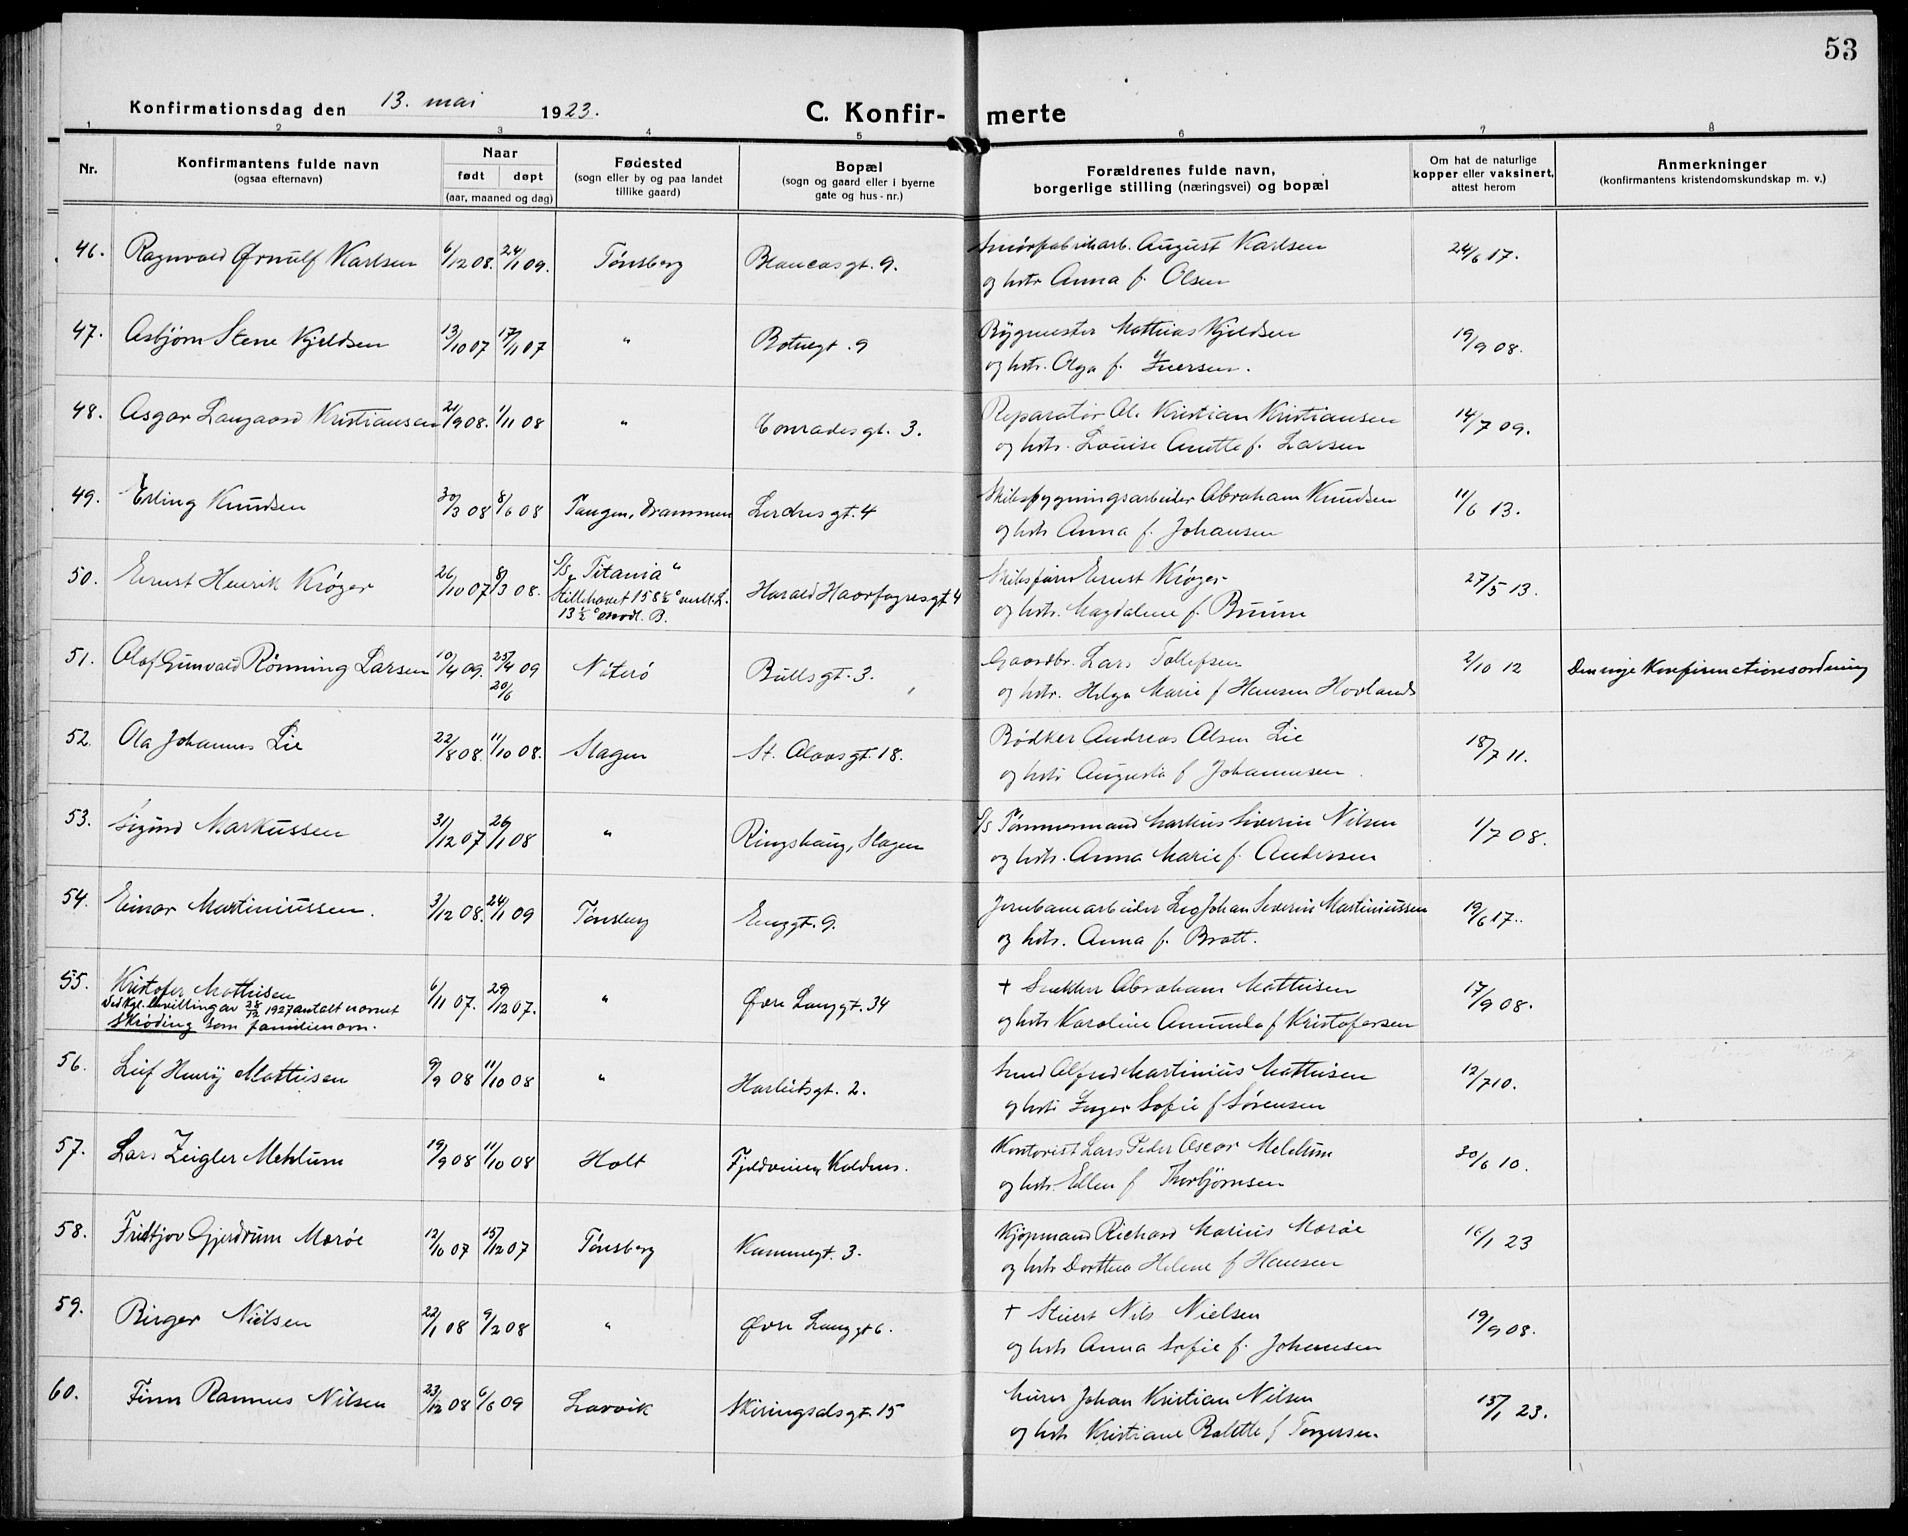 53
Konfirmationsdag den 13. mai 1923. C. Konfir- merte
1 2 3 4 5 6 7 8
Nr. Konfirmantens fulde navn (ogsaa efternavn) Naar født døpt (aar, maaned og dag) Fødested (sogn eller by og paa landet tillike gaard) Bopæl (sogn og gaard eller i byerne gate og hus-nr.) Forældrenes fulde navn, borgerlige stilling (næringsvei) og bopæl Om hat de naturlige kopper eller vaksinert, attest herom Anmerkninger (konfirmantens kristendomskundskap m. v.)
46. Ragnvald Ørnulf Karlsen 6/12 08. 24/1 09. Tønsberg Blancasgt. 9. Smørfabrikarb. August Karlsen 24/6 17.
og hstr Anna f. Olsen
47. Asbjørn Stene Kjeldsen 13/10 07 17/11 07 " Botnegt. 9 Bygmester Mathias Kjeldsen 19/9 08.
og hstr. Olga f. Iversen.
48. Asgar Langaard Kristiansen 21/9 08. 1/11 08 " Conradesgt. 3. Reparatør Ole Kristian Kristiansen 14/7 09.
og hstr. Louise Anette f. Larsen
49. Erling Knudsen 30/3 08 8/6 08 Tangen, Drammen Lerchesgt. 4 Skibsbygningsarbeider Abraham Knudsen 11/6 13.
og hstr Anna f. Johansen
50. Ernst Henrik Krøger 26/10 07 8/3 08. S/S "Titania" Harald Haarfagresgt 4 Skibsfører Ernst Krøger 27/5 13.
Stillehavet 158½° vestl. L.
13½° nordl. B. og hstr. Magdalene f. Bruun
51. Olaf Gunvald Rønning Larsen 10/4 09. 25/4 09 20/6 Nøterø Bullsgt. 3. Gaardbr. Lars Tollefsen 2/10 12 Den nye Konfirmationsordning
og hstr. Helga Marie f Hansen Hovland
52. Ola Johannes Lie 22/8 08. 11/10 08. Slagen St. Olavsgt. 18. Bødker Andreas Olsen Lie 18/7 11.
og hstr Augusta f Johannesen.
53. Sigurd Markussen 31/12 07 26/1 08 " Ringshaug, Slagen S/S Tømmermand Markus Severin Nilsen 1/7 08.
og hstr. Anna Marie f. Andersen
54. Einar Martiniussen. 3/12 08. 24/1 09 Tønsberg Enggt. 9. Jernbanearbeider Johan Severin Martiniussen 19/6 17.
og hstr. Anna f. Bratt.
55. Kristofer Mathisen 6/11 07. 29/12 07. " Øvre Langgt. 34 + Snekker Abraham Mathisen 17/9 08.
Ved kgl. bevilling av 28/12 1927 antatt navnet
Skrøding som familienavn. og hstr Karoline Amunda f Kristofersen
56. Leif Henry Mathisen 9/9 08 11/10 08 " Harleitsgt. 2. Smed Alfred Martinius Mathisen 12/7 10.
og hstr Inger Sofie f Sørensen
57. Lars Zeigler Mehlum 19/9 08 11/10 08 Holt Fjeldveien, Koldnes. Kontorist Lars Peder Oscar Mehlum 30/6 10.
og hstr. Ellen f Thorbjørnsen
58. Fridtjov Gjerdrum Morøe 12/10 07 15/12 07 Tønsberg Kammegt. 3. Kjøpmand Richard Marius Morøe 16/1 23
og hstr Dorthea Helene f Hansen
59. Birger Nielsen 22/1 08 9/2 08 " Øvre Langgt 6. + Stuert Nils Nielsen 19/9 08.
og hstr Anna Sofie f. Johansen
60. Finn Ramnes Nilsen 23/12 08 6/6 09 Larvik Skiringsalsgt. 15 Murer Johan Kristian Nilsen 15/1 23.
og hstr Kristiane Bolette f Torgersen.